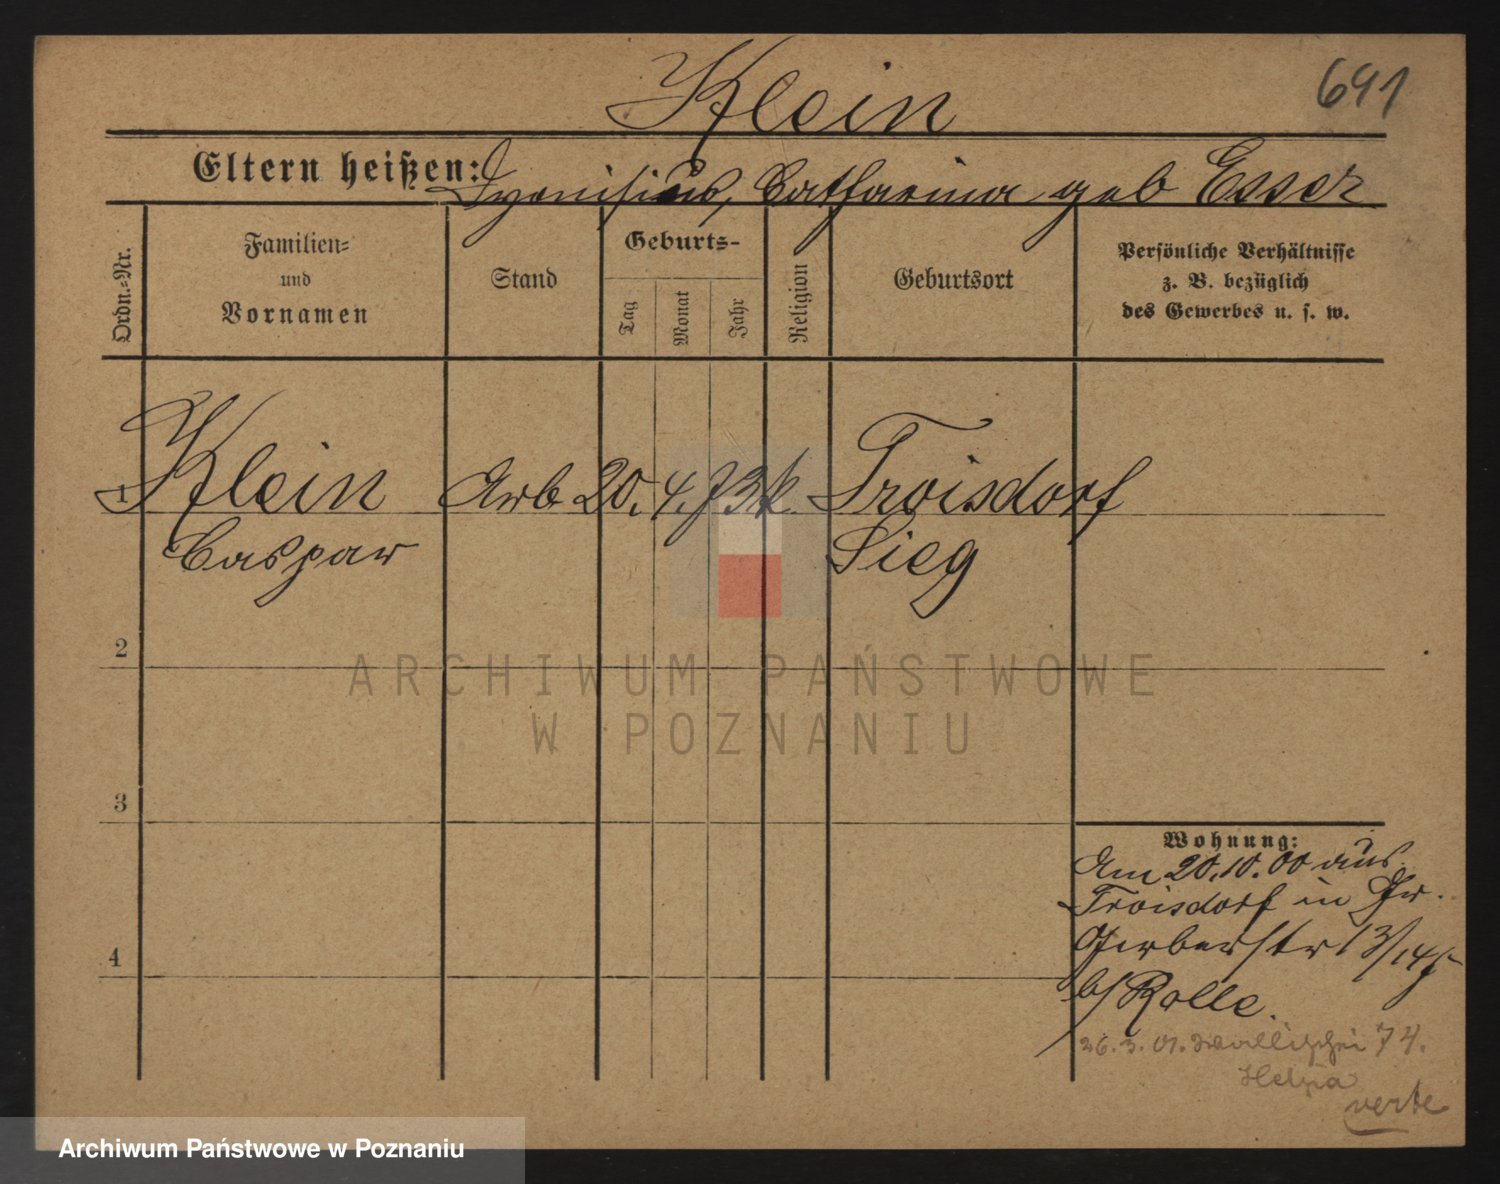 Klein
691
Eltern heißen: Dyonisius, Catharina geb Esser
Ordn.-Nr.
Familien-
und
Vornamen
Stand
Geburts-
Tag
Monat
Jahr
Religion
Geburtsort
Persönliche Verhältnisse
z. B. bezüglich
des Gewerbes u. s. w.
1 Klein Arb 20. 4. 73 k. Troisdorf
Caspar Sieg
2
ARCHIWUM PAŃSTWOWE
W POZNANIU
3
Wohnung:
Am 20.10.00 aus
Troisdorf in
Gerberstr 13/14
b/ Rolle.
4
26. 3. 01. Wallischei 74.
verte
Archiwum Państwowe w Poznaniu